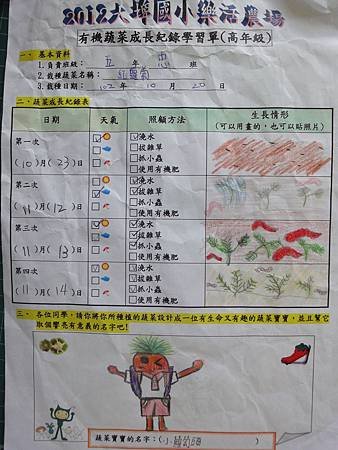 2012大埤國小樂活農場
有機蔬菜成長紀錄學習單(高年級)
一、基本資料
1.負責班級： 五 年 忠 班
2.栽種蔬菜名稱：
3.栽種日期： 102 年 10 月 20 日
二、蔬菜成長紀錄表
日期 天氣 照顧方法 生長情形
(可以用畫的，也可以貼照片)
第一次
(10)月(23)日
澆水
拔雜草
抓小蟲
使用有機肥
第二次
(11)月(12)日
澆水
拔雜草
抓小蟲
使用有機肥
第三次
(11)月(13)日
澆水
拔雜草
抓小蟲
使用有機肥
第四次
(11)月(14)日
澆水
拔雜草
抓小蟲
使用有機肥
三、各位同學，請你將你所種植的蔬菜設計成一位有生命又有趣的蔬菜寶寶，並且幫它
取個響亮有意義的名字吧!
蔬菜寶寶的名字：(